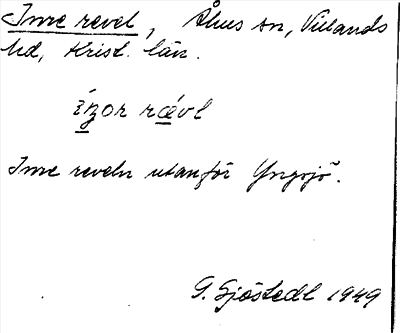 Inre revel, Åhus sn, Villands
hd, Krist. län.
rævl
Inre reveln utanför Yngsjö.
G. Sjöstedt 1949